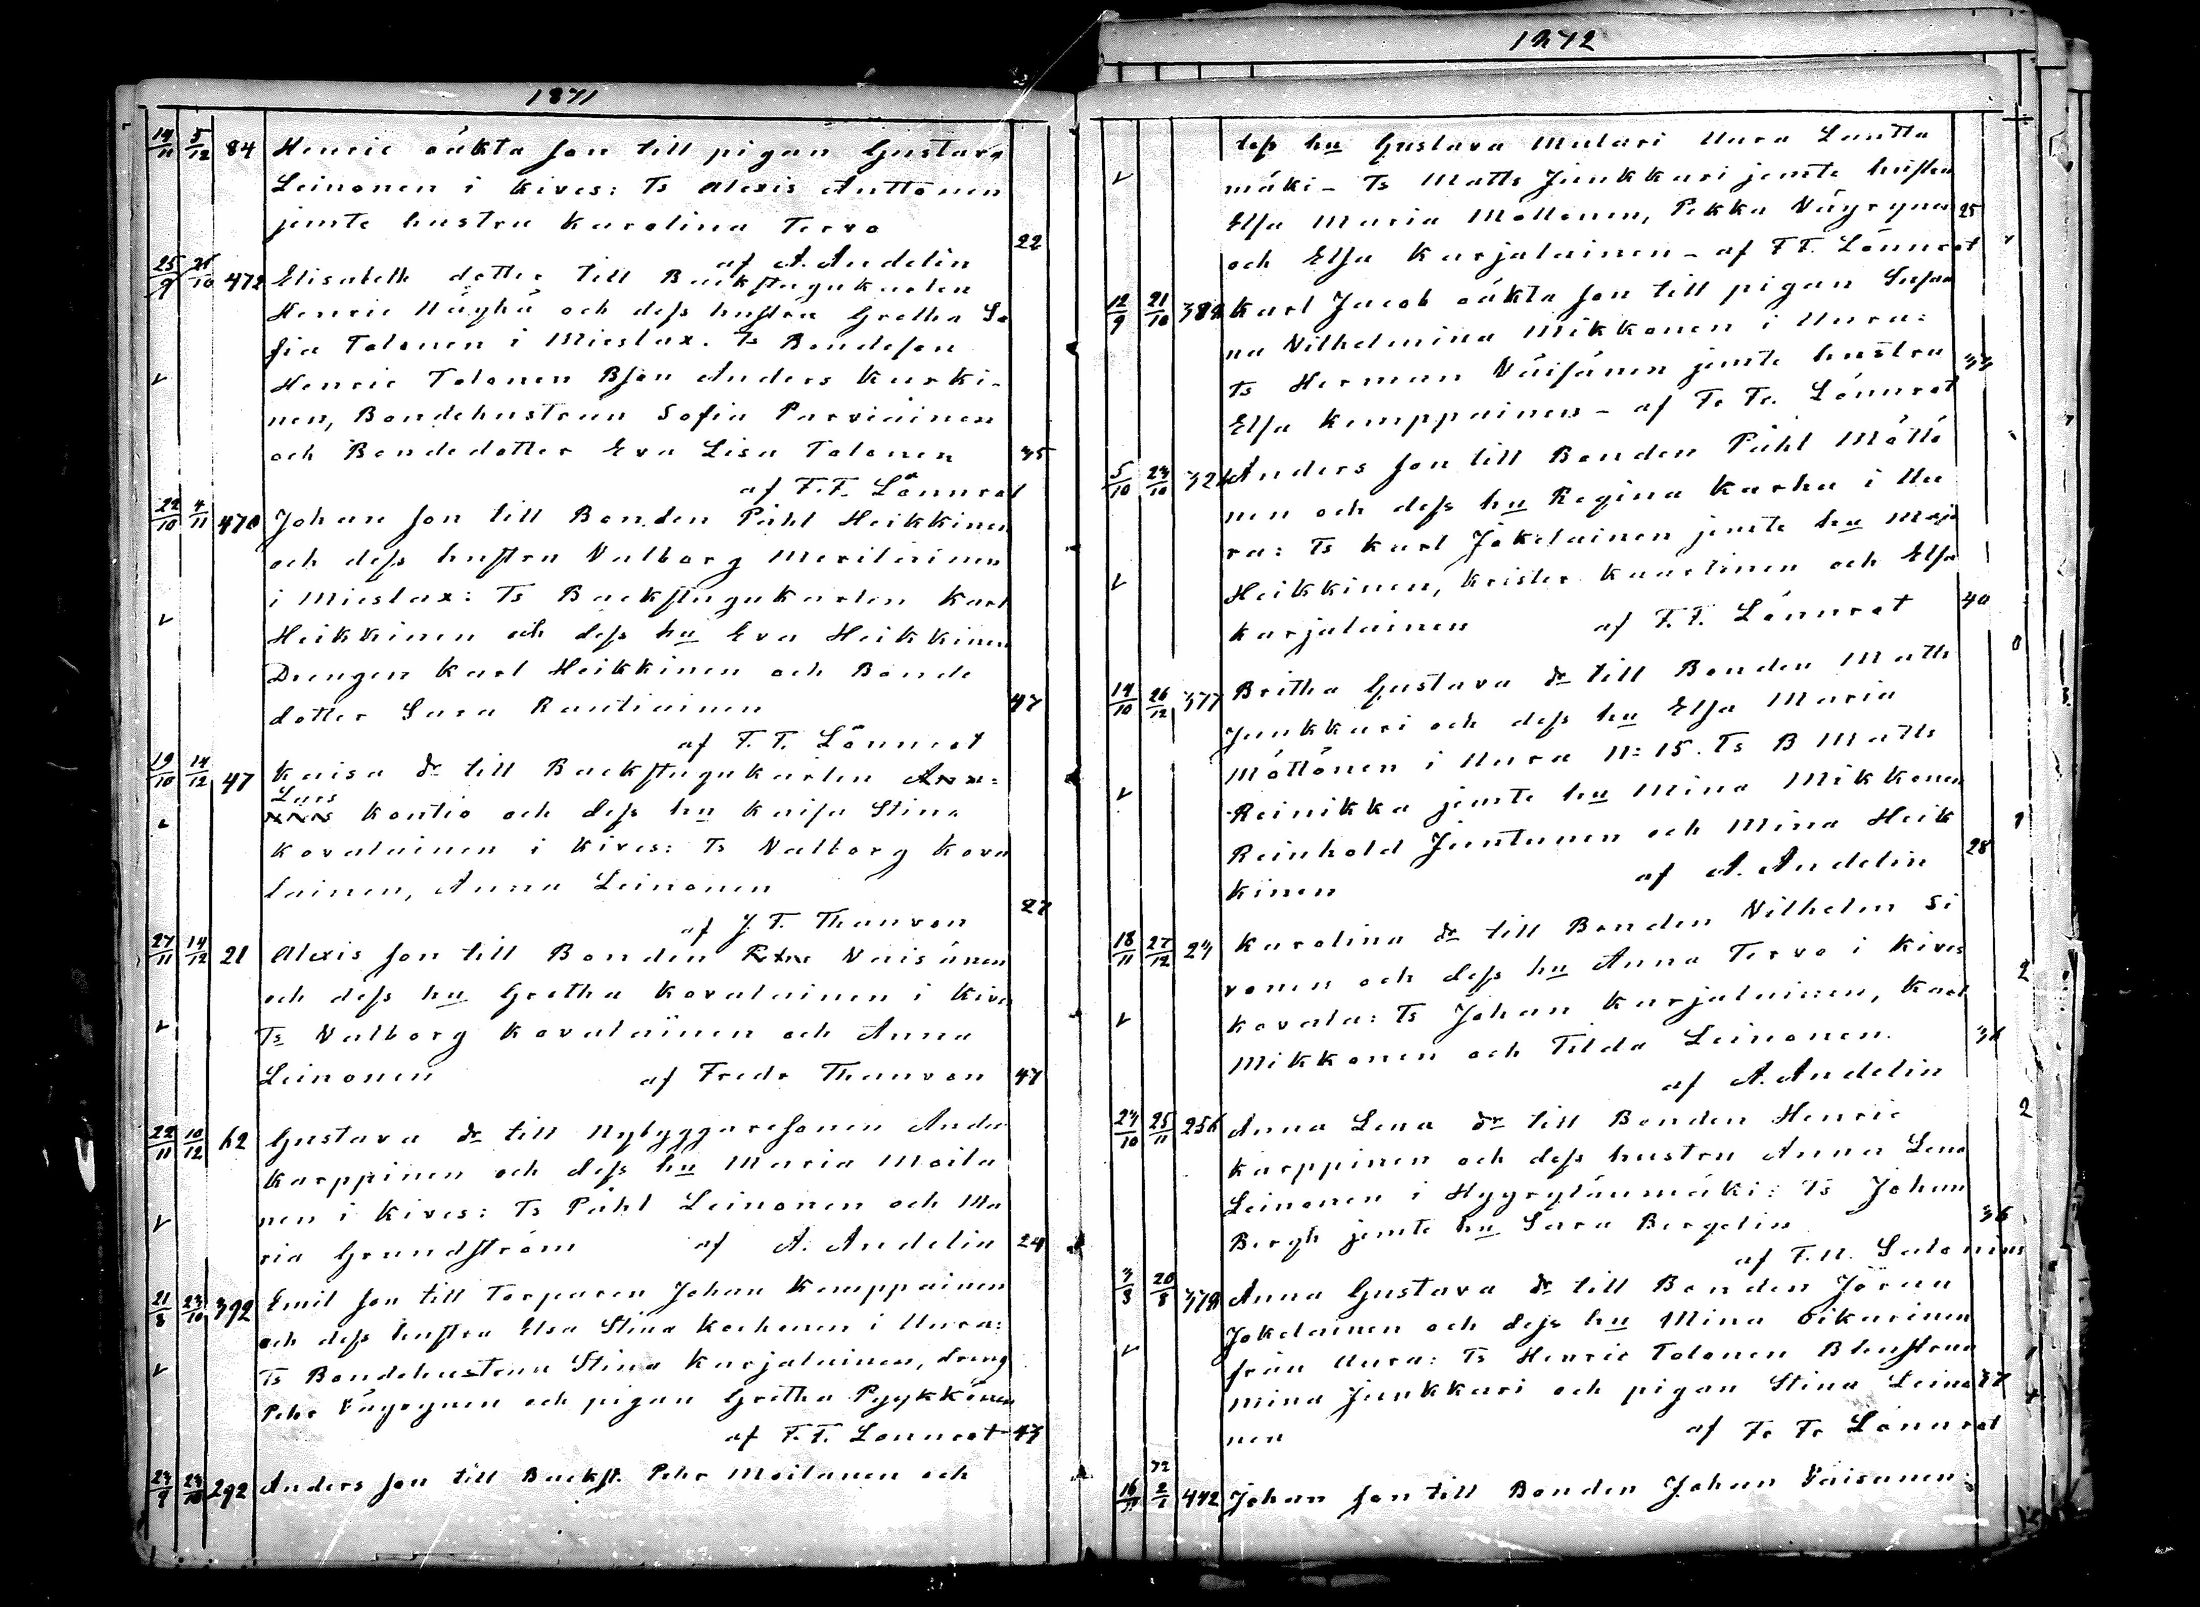 1871
14/11 5/12 84 Henric oäkta son till pigan Gustava
Leinonen i Kives: Ts Alexis Anttonen
jemte hustru Karolina Tervo
22
af A. Andelin
25/9 21/10 472 Elisabeth dotter till Backstugukarlen
Henric Näyhä och dess hustru Gretha So
fia Tolonen i Mieslax. Ts Bondeson
Henric Tolonen Bson Anders Kurki-
nen, Bondehustrun Sofia Parviainen
och Bondedotter Eva Lisa Tolonen 35
af F.F. Lönnrot
22/10 4/11 470 Johan son till Bonden Påhl Heikkinen
och dess hustru Valborg Meriläinen
i Mieslax: Ts Backstugukarlen Karl
Heikkinen och dess hu Eva Heikkinen
Drengen Karl Heikkinen och Bonde
dotter Sara Rautiainen 47
af F.F. Lönnrot
19/10 14/12 47 Kaisa dr till Backstugukarlen
Lars
Kontio och dess hu Kaisa Stina
Kovalainen i Kives: Ts Valborg Kova
lainen, Anna Leinonen
27
af J.F. Thauvon
27/11 14/12 21 Alexis son till Bonden Petter Väisänen
och dess hu Gretha Kovalainen i Kives
Ts Valborg Kovalainen och Anna
Leinonen af Fredr Thauvon 47
22/11 10/12 62 Gustava dr till Nybyggaresonen Ander
Karppinen och dess hu Maria Moila
nen i Kives: Ts Påhl Leinonen och Ma
ria Grundström af A. Andelin 24
21/8 23/10 392 Emil son till Torparen Johan Kemppainen
och dess hustru Elsa Stina Kochonen i Uura:
Ts Bondehustrun Stina Karjalainen, dreng
Pehr Väyrynen och pigan Gretha Pyykkönen
af F.F. Lönnrot 43
23/9 23/10 292 Anders son till Backst. Pehr Moilanen och
1872
dess hu Gustava Mulari Uura Lautta
mäki - Ts Matts Junkkari jemte hustru
Elsa Maria Möttönen, Pekka Väyrynen 25
och Elsa Karjalainen - af F.F. Lönnrot
12/9 21/10 382 Karl Jacob oäkta son till pigan Susan
na Vilhelmina Mikkonen i Uura:
Ts Herman Väisänen jemte hustru 33
Elsa Kemppainen - af Fr Fr. Lönnrot
5/10 23/10 Anders son till Bonden Påhl Möttö
nen och dess hu Regina Karhu i Uu
ra: Ts Karl Jokelainen jemte hu Maja
Heikkinen, Krister Kaartinen och Elsa
Karjalainen af F.F. Lönnrot 40
14/10 26/12 377 Britha Gustava dr till Bonden Math
Junkkari och dess hu Elsa Maria
Möttönen i Uura N: 15. Ts B Matts
Reinikka jemte hu Mina Mikkonen
Reinhold Juntunen och Mina Heik
kinen af A. Andelin 28
18/11 27/12 23 Karolina dr till Bonden Vilhelm Si
vonen och dess hu Anna Tervo i Kives
Kovala: Ts Johan Karjalainen, Karl
Mikkonen och Tilda Leinonen. 31
af A. Andelin
23/10 25/11 256 Anna Lena dr till Bonden Henric
Karppinen och dess hustru Anna Lena
Leinonen i Hyyrylänmäki: Ts Johan
Bergh jemte hu Sara Bergelin 36
af F.N. Salonius
3/8 20/8 Anna Gustava dr till Bonden Jöran
Jokelainen och dess hu Mina Oikarinen
från Uura: Ts Henric Tolonen Bhustrun
Mina Junkkari och pigan Stina Leino 37
nen af Fr Fr Lönnrot
72
16/11 2/1 442 Johan son till Bonden Johan Väisänen